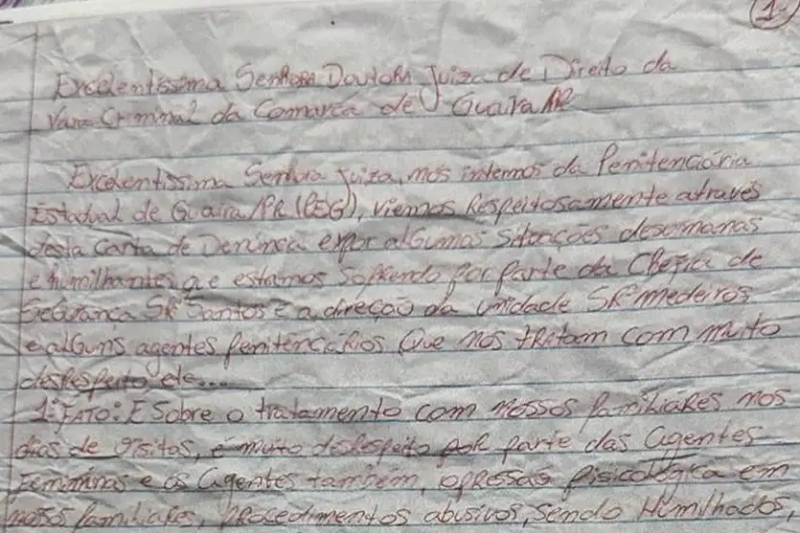 1-
Excelentissima Senhora Doutora Juiza de Direito da
Vara Criminal da Comarca de Guaira PR
Excelentissima Senhora Juiza, nós internos da Penitenciária
Estadual de Guaira/PR (PEG), viemos Respeitosamente através
desta Carta de Denúncia expor alGumas Situações desumanas
e humilhantes que estamos Sofrendo por parte da Chefia de
Segurança SR Santos e a direção da unidade SR medeiros
e alGuns agentes penitenciaRios Que nos tRatam com muito
desRespeito ete...
1º FATO: E Sobre o tratamento com nossos familiaRes nos
dias de visitas, é muito desRespeito poR parte das agentes
Femininas e os agentes também, opRessão pisicológica em
nossos familiaRes, procedimentos abusivos, Sendo Humilhados,